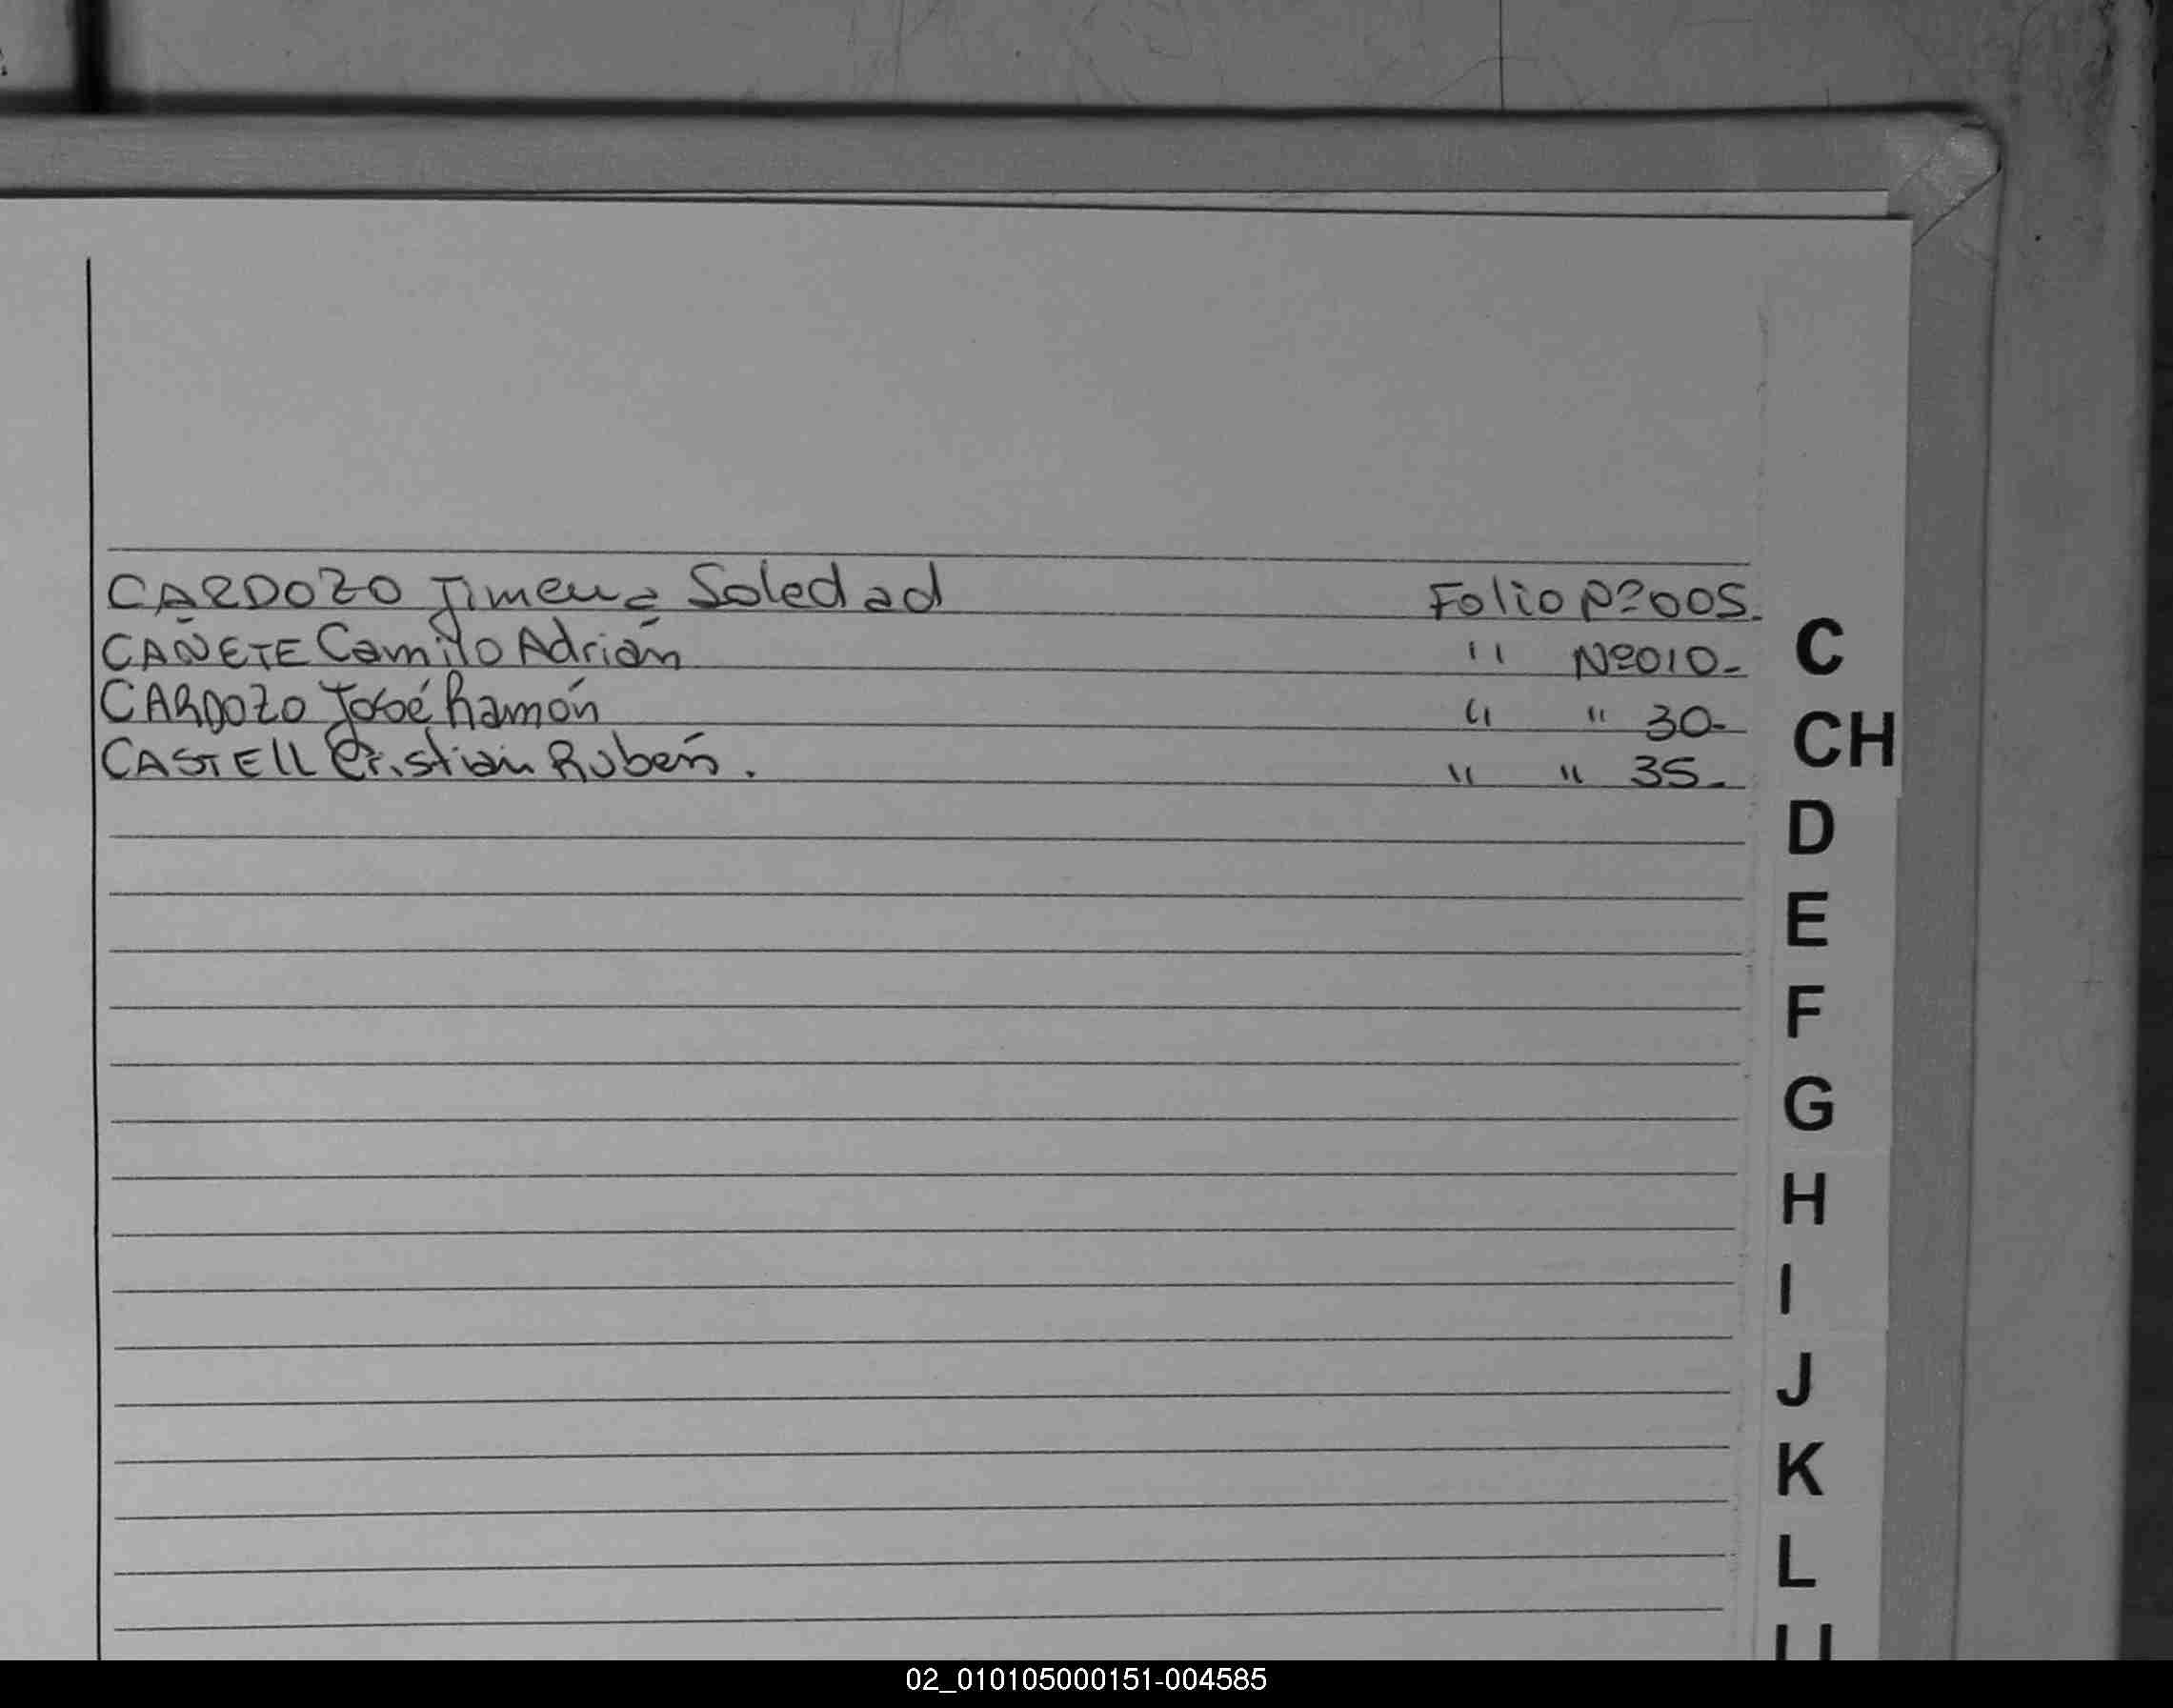 CARDOZO Jimena Soledad Folio Nº 005.
CAÑETE Camilo Adrián " Nº 010-
CARDOZO José Ramón " " 30-
CASTELL Cristian Rubén. " " 35-
C
CH
D
E
F
G
H
I
J
K
L
02_010105000151-004585